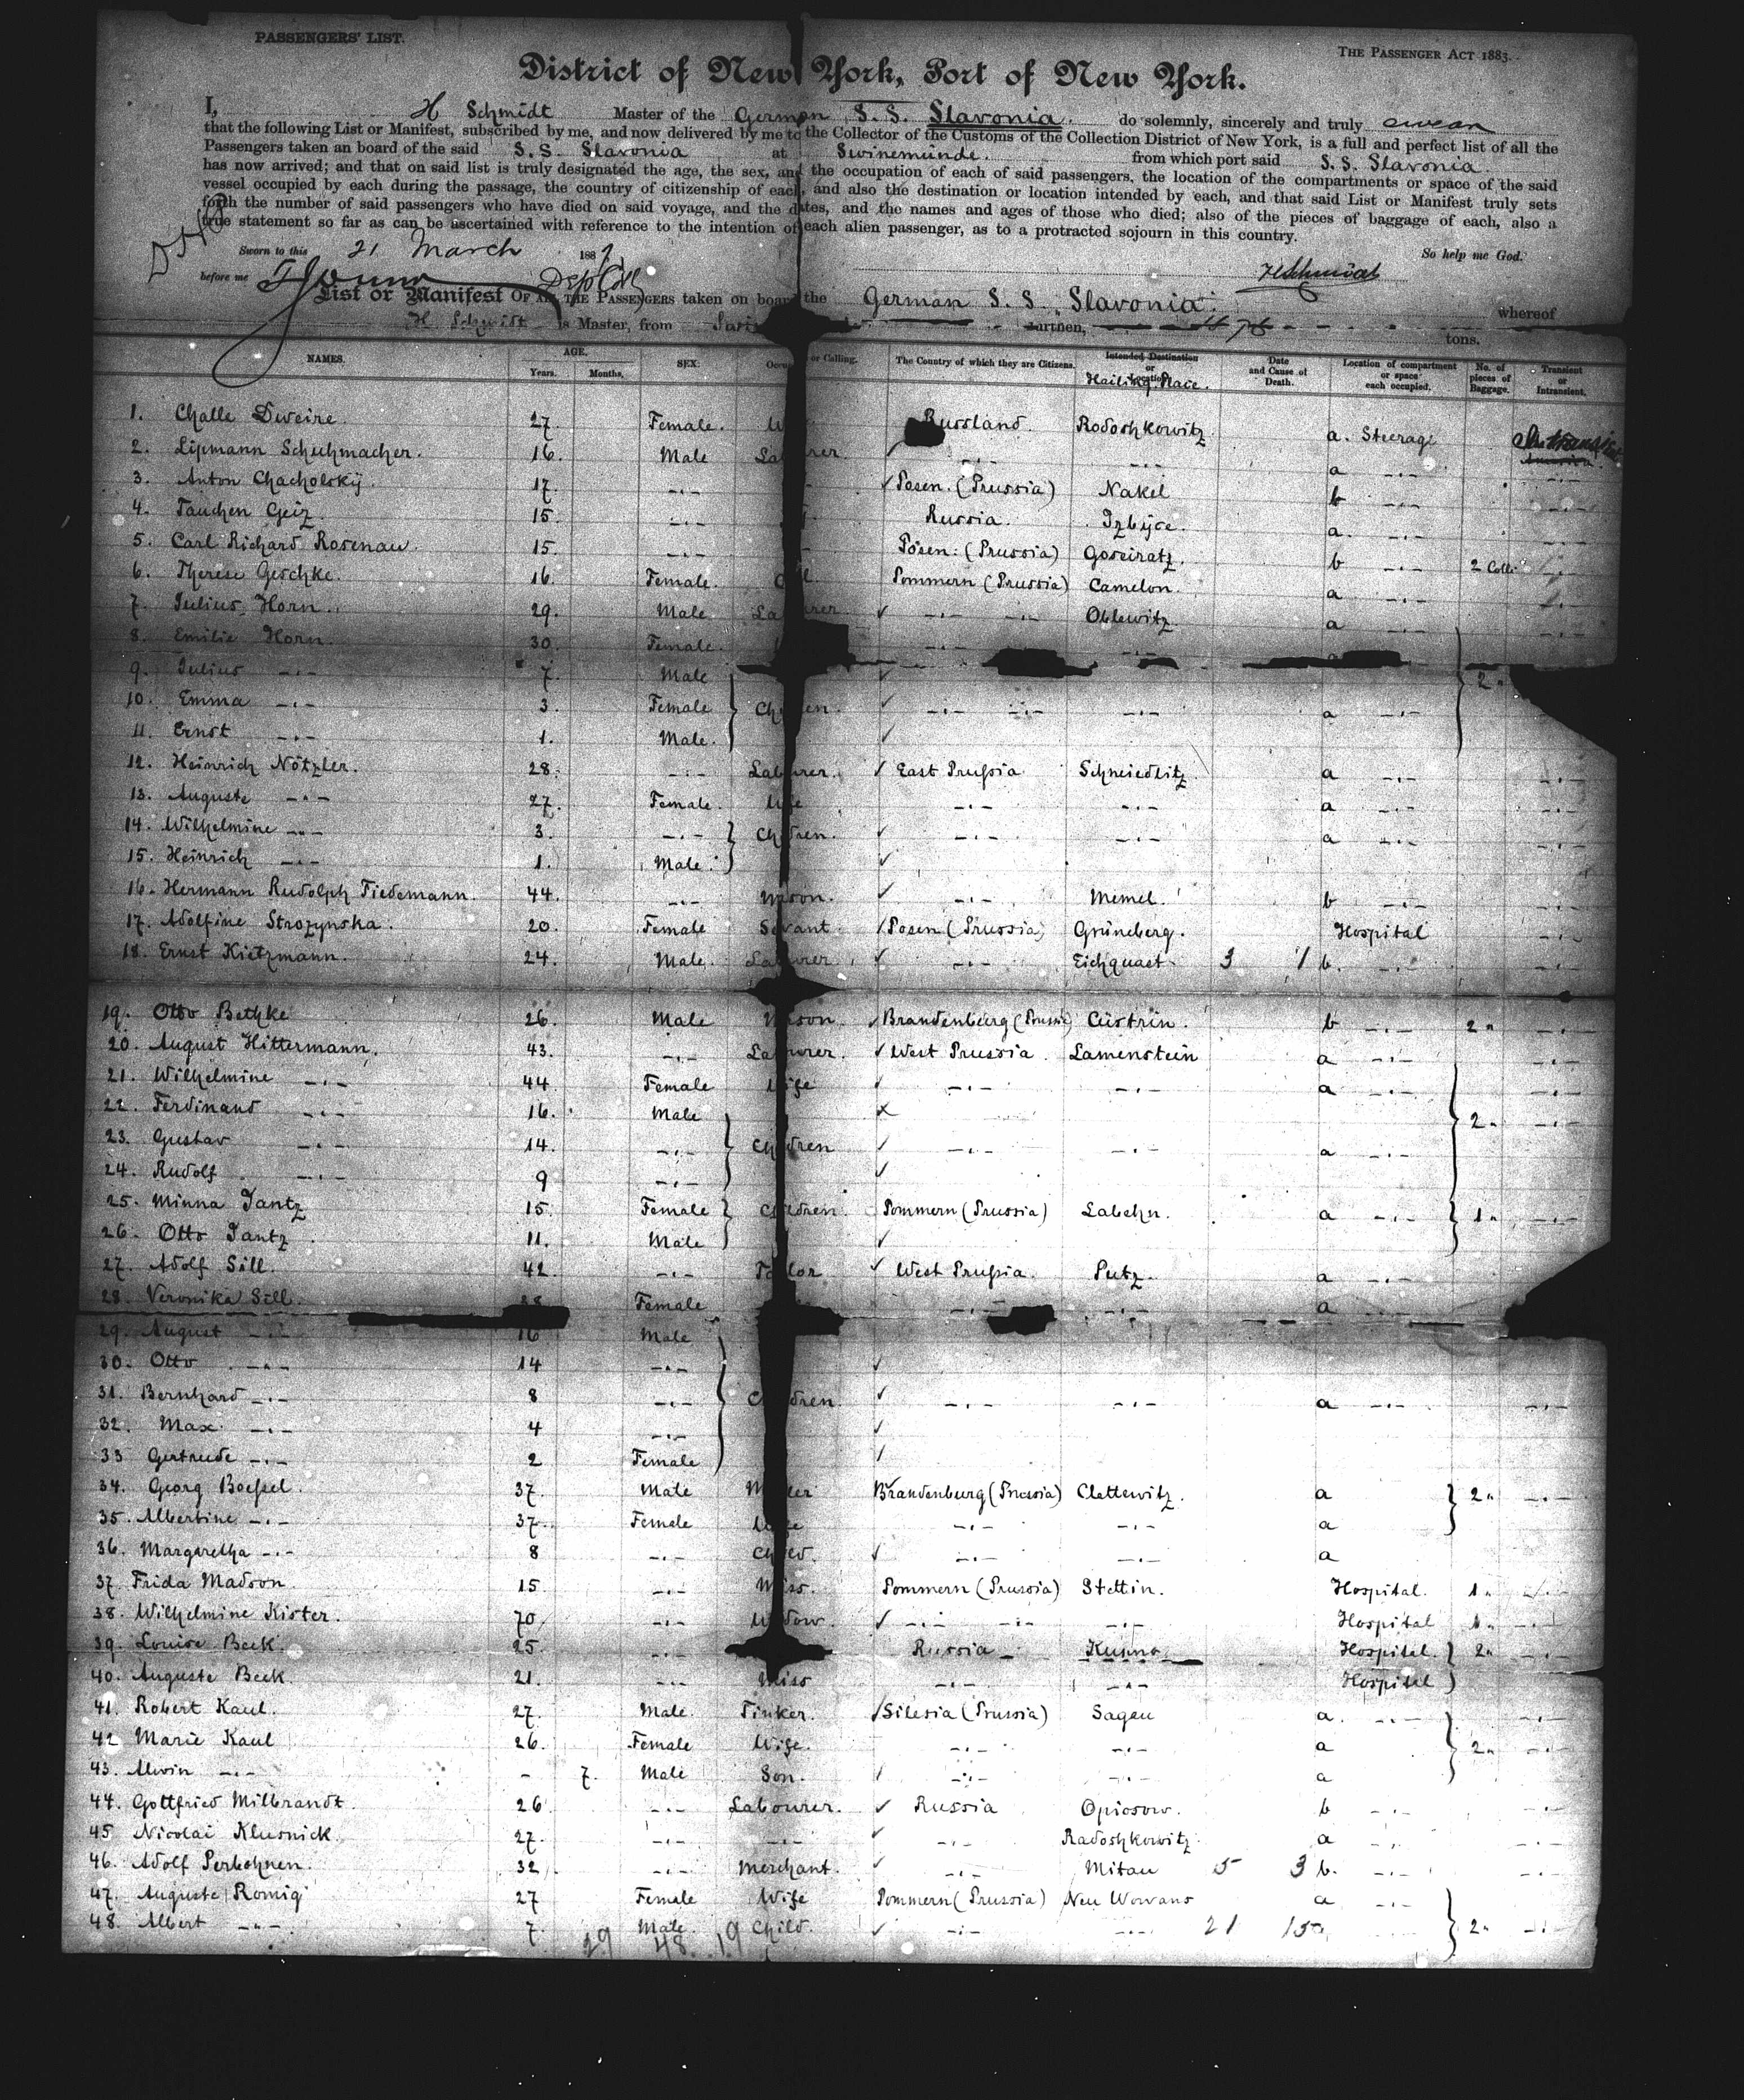 PASSENGERS' LIST.
THE PASSENGER ACT 1883.
District of New York, Port of New York.
I, H Schmidt Master of the German S. S. Slavonia do solemnly, sincerely and truly swear
that the following List or Manifest, subscribed by me, and now delivered by me to the Collector of the Customs of the Collection District of New York, is a full and perfect list of all the
Passengers taken an board of the said S. S. Slavonia at Swinemünde. from which port said S. S. Slavonia
has now arrived; and that on said list is truly designated the age, the sex, and the occupation of each of said passengers, the location of the compartments or space of the said
vessel occupied by each during the passage, the country of citizenship of each, and also the destination or location intended by each, and that said List or Manifest truly sets
forth the number of said passengers who have died on said voyage, and the dates, and the names and ages of those who died; also of the pieces of baggage of each, also a
true statement so far as can be ascertained with reference to the intention of each alien passenger, as to a protracted sojourn in this country.
Sworn to this 21 March 1887. So help me God.
before me HSchmidt
List or Manifest OF ALL THE PASSENGERS taken on board the German S. S. Slavonia. whereof
H Schmidt is Master, from burthen, tons.
NAMES. AGE. Years. Months. SEX. or Calling. The Country of which they are Citizens. Intended Destination or Location. Hailing Place. Date and Cause of Death. Location of compartment or space each occupied. No. of pieces of Baggage. Transient or Intransient.
1. Challe Dweire. 27. Female. Russland. Rodoshkowitz a. Steerage
2. Lipmann Schuhmacher. 16. Male Labourer. -.- -.- a -.- -.-
3. Anton Chacholsky. 17. -.- Posen. (Prussia) Nakel b -.- -.-
4. Tauchen Geiz 15. -.- Russia. Izbyce. a. -.- -.-
5. Carl Richard Rosenau. 15. -.- Posen: (Prussia) Goseiratz. b -.- 2 Colli
6. Therese Geschke. 16. Female. Pommern (Prussia) Camelon. a -.-
7. Julius Horn. 29. Male. Labourer. -.- -.- Oblewitz. a -.- -.-
8. Emilie Horn. 30. Female.
9. Julius -.- 7. Male 2 "
10. Emma -.- 3. Female } Children. -.- -.- -.- a -.-
11. Ernst -.- 1. Male.
12. Heinrich Nötzler. 28. -.- Labourer. East Prussia Schmiedlitz a -.- -.-
13. Auguste -.- 27. Female. Wife -.- -.- a -.- -.-
14. Wilhelmine -.- 3. -.- } Children. -.- -.- a -.- -.-
15. Heinrich -.- 1. Male.
16. Hermann Rudolph Tiedemann. 44. -.- Mason. -.- Memel. b -.- -.-
17. Adolfine Strozynska. 20. Female Servant Posen (Prussia) Grüneberg. Hospital -.-
18. Ernst Kietzmann. 24. Male. Labourer. -.- Eichquast 3 1 b. -.- -.-
19. Otto Bethke 26. Male Mason. Brandenburg (Prussia) Cüstrin. b -.- 2 " -.-
20. August Hittermann. 43. -.- Labourer. West Prussia. Lamenstein a -.- -.-
21. Wilhelmine -.- 44. Female Wife -.- -.- a -.- -.-
22. Ferdinand -.- 16. Male 2 " -.-
23. Gustav -.- 14. -.- } Children -.- -.- a -.-
24. Rudolf -.- 9 -.-
25. Minna Jantz 15. Female } Children. Pommern (Prussia) Labehn. a -.- 1 " -.-
26. Otto Jantz. 11. Male
27. Adolf Sill. 42. -.- Tailor West Prussia. Putz. a -.-
28. Veronika Sill. 38 Female -.- -.- a -.-
29. August -.- 16 Male
30. Otto -.- 14 -.-
31. Bernhard -.- 8 -.- } Children. -.- -.- a -.- -.-
32. Max. -.- 4 -.-
33 Gertrude -.- 2 Female
34. Georg Boessel. 37. Male Brandenburg (Prussia) Clettewitz. a } 2 " -.-
35. Albertine -.- 37. Female Wife -.- -.- a
36. Margaretha -.- 8 -.- Child. -.- -.- a
37. Frida Madson 15 -.- Miss. Pommern (Prussia) Stettin. Hospital. 1 " -.-
38. Wilhelmine Kister. 70. -.- Widow. -.- -.- -.- Hospital 1 " -.-
39. Louise Beek. 25. -.- Russia Hospital. } 2 " -.-
40. Auguste Beek 21. -.- Miss -.- -.- Hospital
41. Robert Kaul. 27. Male. Tinker. Silesia (Prussia) Sagen a. -.- -.-
42 Marie Kaul 26. Female Wife. -.- -.- a } 2 " -.-
43. Alwin -.- - 7. Male Son. -.- -.- a
44. Gottfried Milbrandt. 26 -.- Labourer. Russia Opiosow. b -.- -.-
45 Nicolai Klusnick. 27. -.- -.- -.- Radoshkowitz a -.- -.-
46. Adolf Perbohnen. 32 -.- Merchant. -.- Mitau 5 3 b. -.- -.-
47. Auguste Romig 27 Female Wife Pommern (Prussia) Neu Worvans a -.-
48. Albert -.- 7. Male. Child. -.- -.- 21 15 } 2 " -.-
29 48. 19